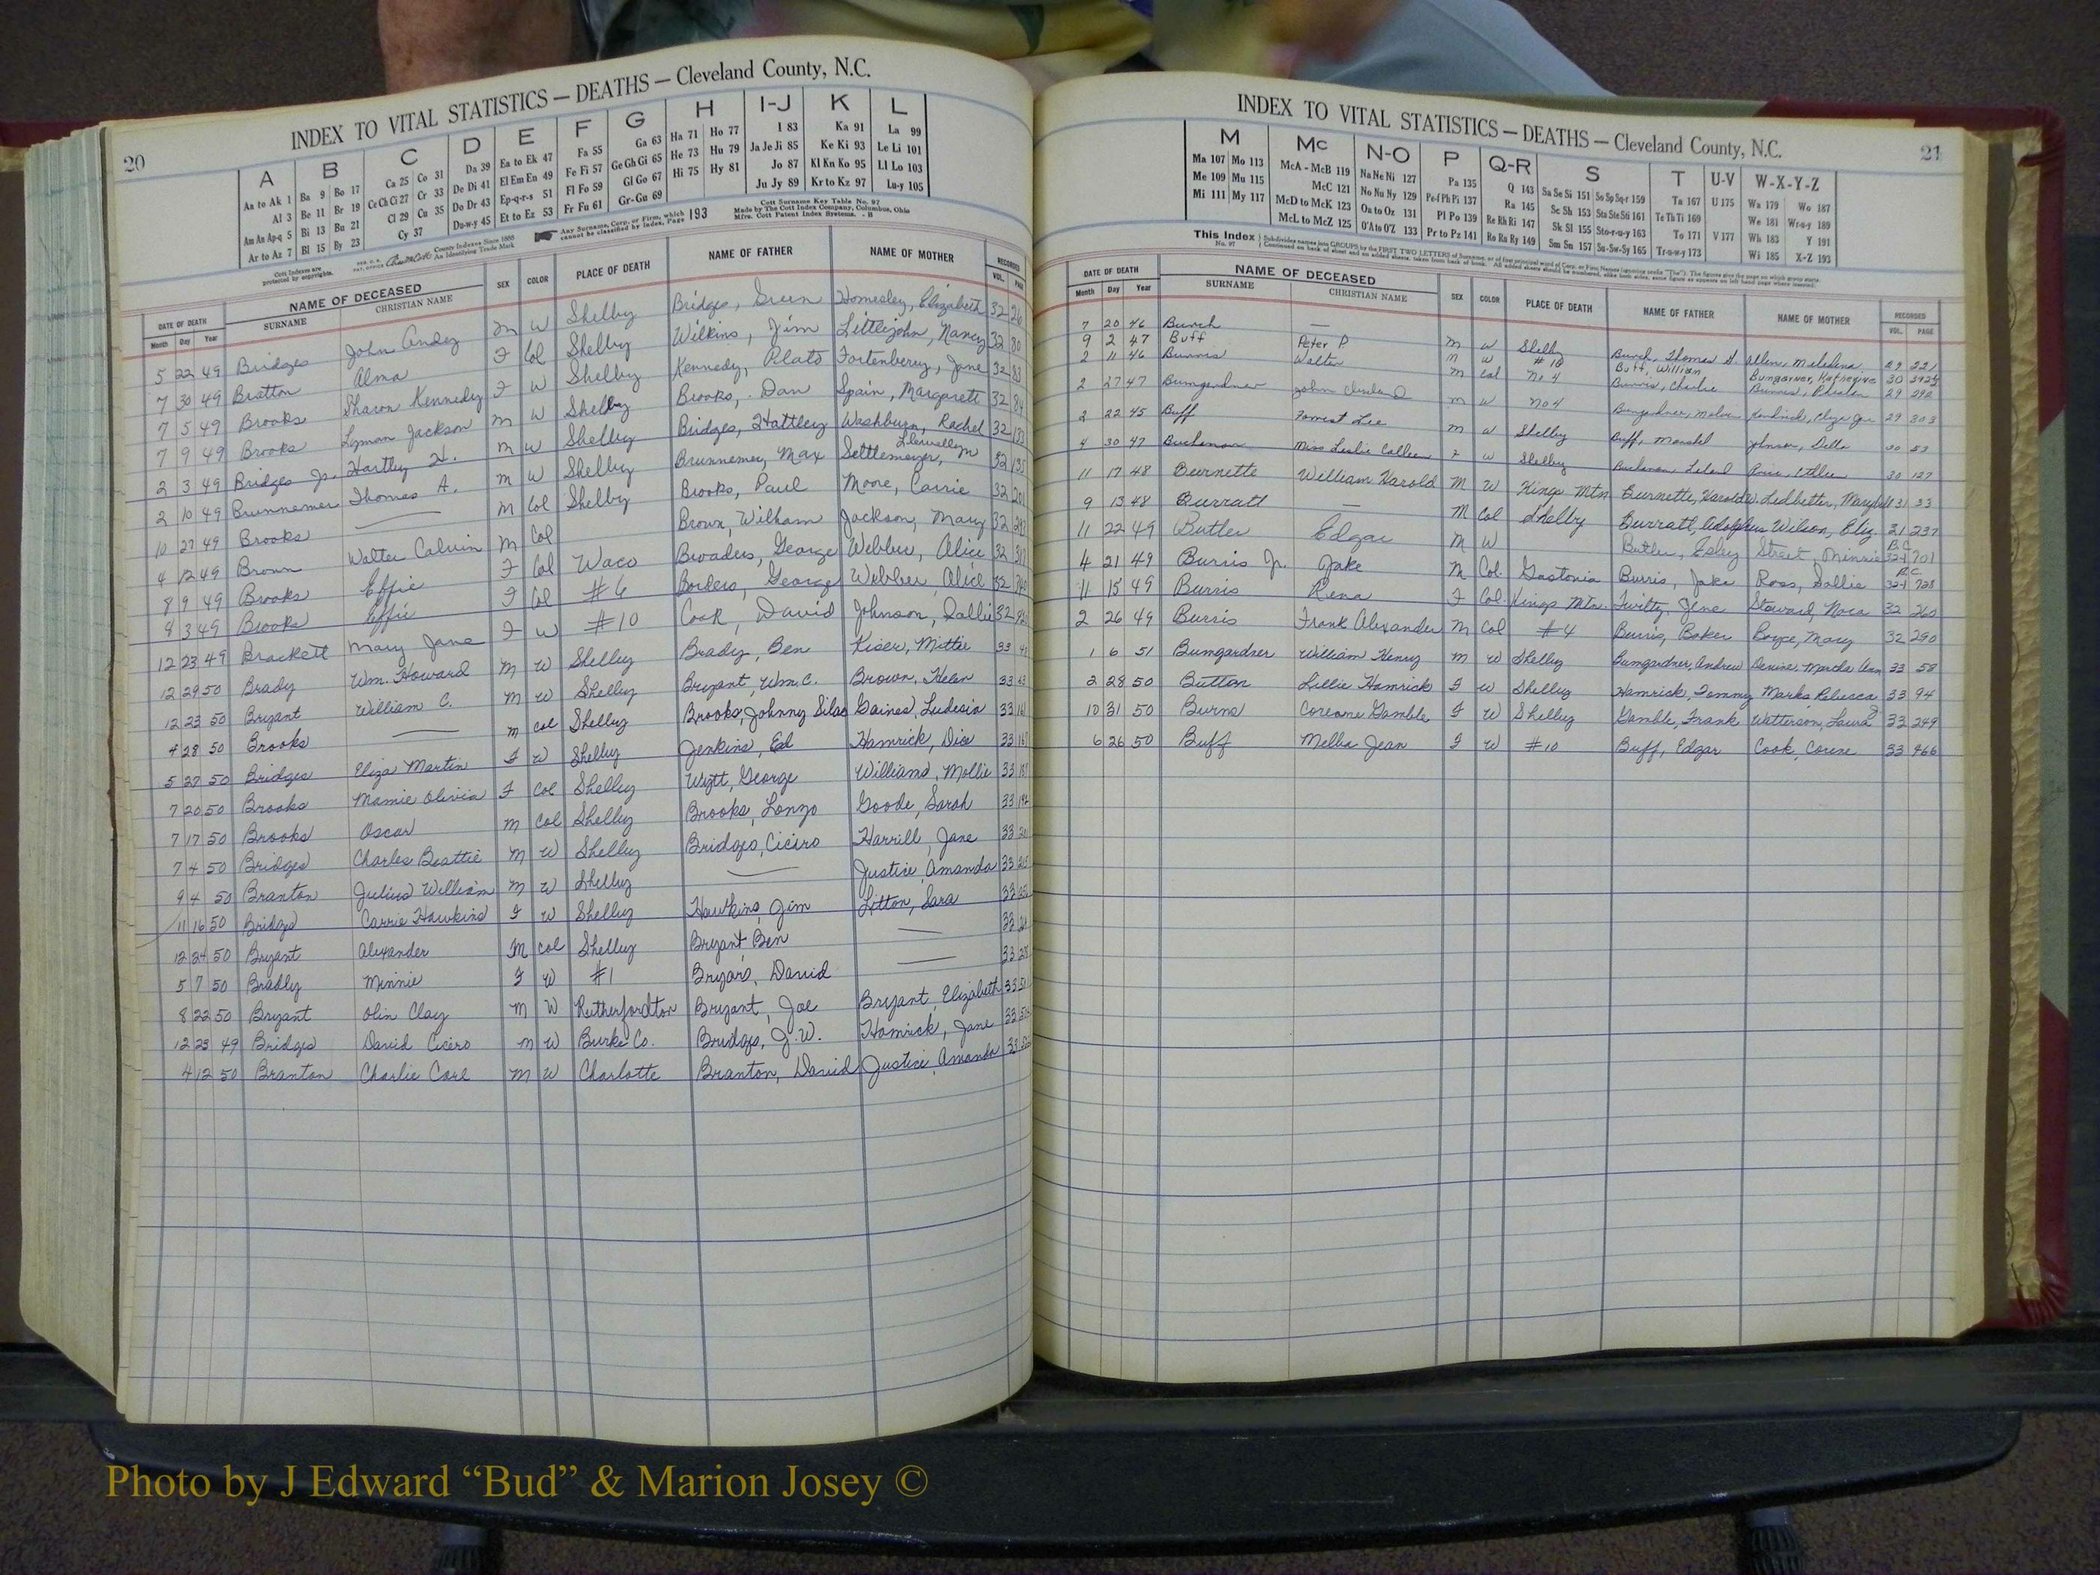 20
INDEX TO VITAL STATISTICS — DEATHS — Cleveland County, N.C.
A B C D E F G H I-J K L
Aa to Ak 1 Ba 9 Bo 17 Ca 25 Co 31 Da 39 Ea to Ek 47 Fa 55 Ga 63 Ha 71 Ho 77 I 83 Ka 91 La 99
Al 3 Be 11 Br 19 Ce Ch Ci 27 Cr 33 De Di 41 El Em En 49 Fe Fi 57 Ge Gh Gi 65 He 73 Hu 79 Ja Je Ji 85 Ke Ki 93 Le Li 101
Am An Ap-q 5 Bi 13 Bu 21 Cl 29 Cu 35 Do Dr 43 Ep-q-r-s 51 Fl Fo 59 Gl Go 67 Hi 75 Hy 81 Jo 87 Kl Kn Ko 95 Ll Lo 103
Ar to Az 7 Bl 15 By 23 Cy 37 Du-w-y 45 Et to Ez 53 Fr Fu 61 Gr-Gu 69 Ju Jy 89 Kr to Kz 97 Lu-y 105
Cott Indexes are protected by copyrights.
County Indexes Since 1888 An Identifying Trade Mark
Any Surname, Corp. or Firm, which cannot be classified by Index, Page 193
Cott Surname Key Table No. 97
Made by The Cott Index Company, Columbus, Ohio
Mfrs. Cott Patent Index Systems. - B
DATE OF DEATH NAME OF DECEASED SEX COLOR PLACE OF DEATH NAME OF FATHER NAME OF MOTHER RECORDED
Month Day Year SURNAME CHRISTIAN NAME VOL. PAGE
5 22 49 Bridges John Andy M W Shelby Bridges, Green Homesley, Elizabeth 32 26
7 30 49 Bratton Alma F Col Shelby Wilkins, Jim Littlejohn, Nancy 32 80
7 5 49 Brooks Sharon Kennedy F W Shelby Kennedy, Plato Fortenberry, Jane 32 83
7 9 49 Brooks Lyman Jackson M W Shelby Brooks, Dan Spain, Margarett 32 84
2 3 49 Bridges Jr. Hartley H. M W Shelby Bridges, Hattley Washburn, Rachel 32
2 10 49 Brunnemer Thomas A. M W Shelby Brunnemer, Max Settlemeyer, Llewellyn 32
10 27 49 Brooks — M Col Shelby Brooks, Paul Moore, Carrie 32
4 12 49 Brown Walter Calvin M Col Brown, William Jackson, Mary 32
8 9 49 Brooks Effie F Col Waco Broaders, George Webber, Alice 32
8 3 49 Brooks Effie F Col #6 Borders, George Webber, Alice 32
12 23 49 Brackett Mary Jane F W #10 Cook, David Johnson, Sallie 32
12 29 50 Brady Wm. Howard M W Shelby Brady, Ben Kiser, Mittie 33
12 23 50 Bryant William C. M W Shelby Bryant, Wm. C. Brown, Helen 33
4 28 50 Brooks — M Col Shelby Brooks, Johnny Silas Gaines, Ludesia 33
5 27 50 Bridges Eliza Martin F W Shelby Jenkins, Ed Hamrick, Dice 33
7 20 50 Brooks Mamie Olivia F Col Shelby Wyatt, George Williams, Mollie 33
7 17 50 Brooks Oscar M Col Shelby Brooks, Lonzo Goode, Sarah 33
7 4 50 Bridges Charles Beattie M W Shelby Bridges, Ciciro Harrill, Jane 33
9 4 50 Branton Julius William M W Shelby — Justice, Amanda 33
11 16 50 Bridges Carrie Hawkins F W Shelby Hawkins, Jim Litton, Sara 33
12 24 50 Bryant Alexander M Col Shelby Bryant, Ben — 33
5 7 50 Bradly Minnie F W #1 Bryars, David — 33
8 22 50 Bryant Olin Clay M W Rutherfordton Bryant, Joe Bryant, Elizabeth 33
12 23 49 Bridges David Ciciro M W Burke Co. Bridges, J.W. Hamrick, Jane 33
4 12 50 Branton Charlie Carl M W Charlotte Branton, David Justice, Amanda 33
21
INDEX TO VITAL STATISTICS — DEATHS — Cleveland County, N.C.
M Mc N-O P Q-R S T U-V W-X-Y-Z
Ma 107 Mo 113 McA - McB 119 Na Ne Ni 127 Pa 135 Q 143 Sa Se Si 151 So Sp Sq-r 159 Ta 167 U 175 Wa 179 Wo 187
Me 109 Mu 115 McC 121 No Nu Ny 129 Pe-f Ph Pi 137 Ra 145 Sc Sh 153 Sta Ste Sti 161 Te Th Ti 169 We 181 Wr-u-y 189
Mi 111 My 117 McD to McK 123 Oa to Oz 131 Pl Po 139 Re Rh Ri 147 Sk Sl 155 Sto-r-u-y 163 To 171 V 177 Wh 183 Y 191
McL to McZ 125 O'A to O'Z 133 Pr to Pz 141 Ro Ru Ry 149 Sm Sn 157 Su-Sw-Sy 165 Tr-u-w-y 173 Wi 185 X-Z 193
This Index No. 97 Subdivides names into GROUPS by the FIRST TWO LETTERS of Surname
DATE OF DEATH NAME OF DECEASED SEX COLOR PLACE OF DEATH NAME OF FATHER NAME OF MOTHER RECORDED
Month Day Year SURNAME CHRISTIAN NAME VOL. PAGE
7 20 46 Burch — M W Shelby Burch, Thomas Allen, 29 221
9 2 47 Buff Peter P M W #10 Buff, William Bumgarner, Katherine 30
2 11 46 Burris Walter M Col No 4 Burris, Charlie Burris, 29 292
2 27 47 Bumgardner John M W No 4 Bumgardner, Kendrick, 29 303
2 22 45 Buff Forrest Lee M W Shelby Buff, Marshal Johnson, Della 30 53
4 30 47 Buchanan Miss Leslie Colleen F W Shelby Buchanan, Leland 30 127
11 17 48 Burnette William Harold M W Kings Mtn Burnette, Harold W. Ledbetter, 31 33
9 13 48 Burratt — M Col Shelby Burratt, Adolphus Wilson, Eliz. 31 237
11 22 49 Butler Edgar M W Butler, Esley Street, Minnie 701
4 21 49 Burris Jr. Jake M Col. Gastonia Burris, Jake Ross, Sallie 728
11 15 49 Burris Rena F Col. Kings Mtn. Twitty, Gene Steward, Nora 32 260
2 26 49 Burris Frank Alexander M Col #4 Burris, Baker Boyce, Mary 32 290
1 6 51 Bumgardner William Henry M W Shelby Bumgardner, Andrew Devine, Martha Ann 33 58
2 28 50 Button Lillie Hamrick F W Shelby Hamrick, Tommy Marks, Rebecca 33 94
10 31 50 Burns Coreane Gamble F W Shelby Gamble, Frank Watterson, Laura 33 249
6 26 50 Buff Melba Jean F W #10 Buff, Edgar Cook, Corene 33 466
Photo by J Edward “Bud” & Marion Josey ©